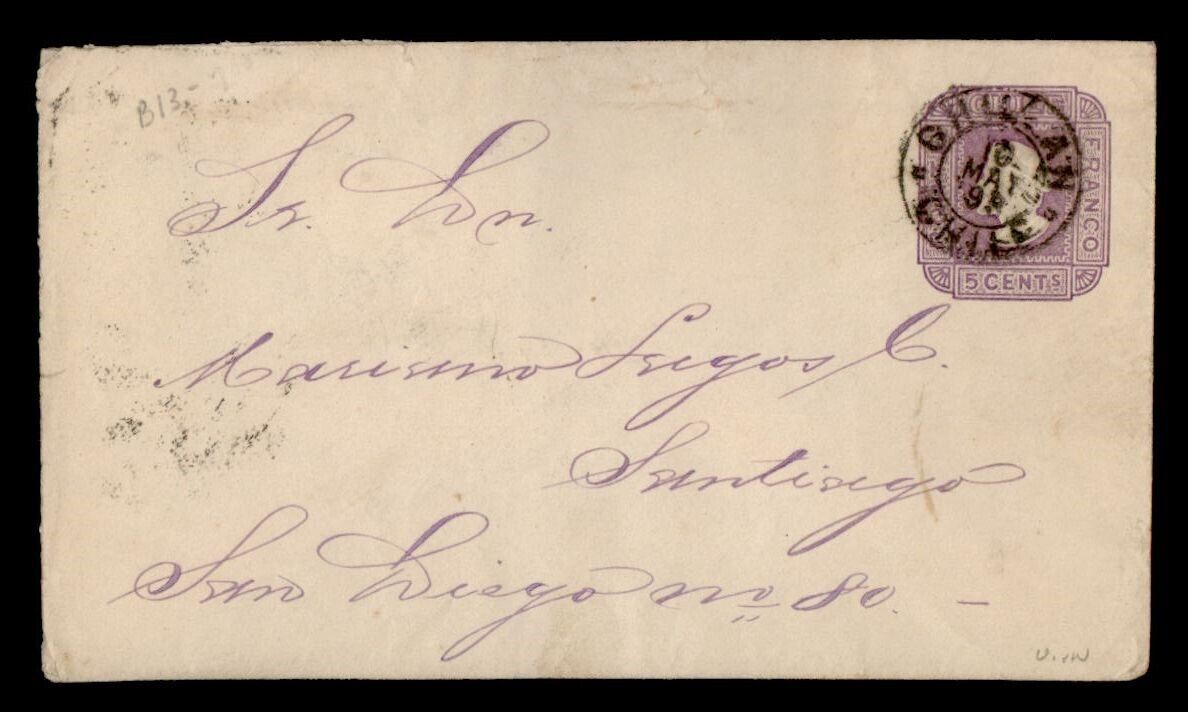 B13-
CHILE
FRANCO
5 CENTS
CHILLAN
MAY
CHILE
Sr. Dn.
Mariano Trigos C.
Santiago
San Diego no 80. -